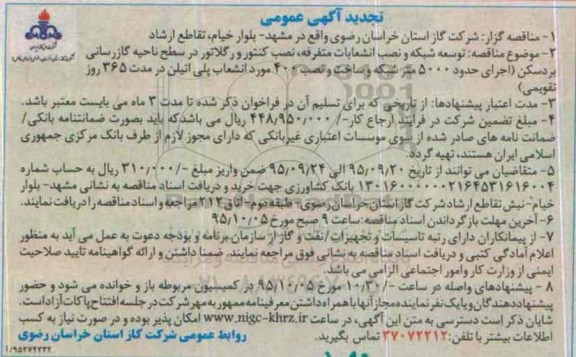 تجدید آگهی عمومی
۱- مناقصه گزار: شرکت گاز استان خراسان رضوی واقع در مشهد- بلوار خیام، تقاطع ارشاد
۲- موضوع مناقصه: توسعه شبکه و نصب انشعابات متفرقه، نصب کنتور و رگلاتور در سطح ناحیه گازرسانی
بردسکن (اجرای حدود ۵۰۰۰ متر شبکه و ساخت و نصب ۴۰۰ مورد انشعاب پلی اتیلن در مدت ۳۶۵ روز
تقویمی)
۳- مدت اعتبار پیشنهادها: از تاریخی که برای تسلیم آن در فراخوان ذکر شده تا مدت ۳ ماه می بایست معتبر باشد.
۴- مبلغ تضمین شرکت در فرآیند ارجاع کار-/ ۴۴۸/۹۵۰/۰۰۰ ریال می باشد که باید بصورت ضمانتنامه بانکی/
ضمانت نامه های صادر شده از سوی موسسات اعتباری غیربانکی که دارای مجوز لازم از طرف بانک مرکزی جمهوری
اسلامی ایران هستند، تهیه گردد.
۵- متقاضیان می توانند از تاریخ ۹۵/۰۹/۲۰ الی ۹۵/۰۹/۲۴ ضمن واریز مبلغ -/ ۳۱۰/۰۰۰ ریال به حساب شماره
بانک کشاورزی جهت خرید و دریافت اسناد مناقصه به نشانی مشهد- بلوار
خیام-نبش تقاطع ارشاد شرکت گاز استان خراسان رضوی- طبقه دوم- اتاق ۲۱۲ مراجعه و اسناد مناقصه را دریافت نمایند.
۶- آخرین مهلت بازگرداندن اسناد مناقصه: ساعت ۹ صبح مورخ ۹۵/۱۰/۰۵
۷- از پیمانکاران دارای رتبه تاسیسات و تجهیزات/نفت و گاز از سازمان برنامه و بودجه دعوت به عمل می آید به منظور
اعلام آمادگی کتبی و دریافت اسناد مناقصه به نشانی فوق مراجعه نمایند. ضمنا داشتن و ارائه گواهینامه تایید صلاحیت
ایمنی از وزارت کار و امور اجتماعی الزامی می باشد.
۸- پیشنهادهای واصله در ساعت -/۱۰/۳۰ مورخ ۹۵/۱۰/۰۵ در کمیسیون مربوطه باز و خوانده می شود و حضور
پیشنهاد دهندگان و یا یک نفر نماینده مجاز آنها با همراه داشتن معرفینامه ممهور به مهر شرکت در جلسه افتتاح پاکات آزاد است.
شایان ذکر است دسترسی به متن این آگهی، در سایت www.nigc-khrz.ir امکان پذیر بوده و در صورت نیاز به کسب
اطلاعات بیشتر با تلفن: ۳۷۰۷۲۲۱۲ تماس بگیرید.
روابط عمومی شرکت گاز استان خراسان رضوی